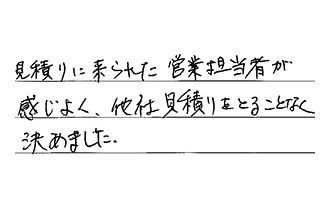 見積りに来られた営業担当者が
感じよく、他社見積りをとることなく
決めました.